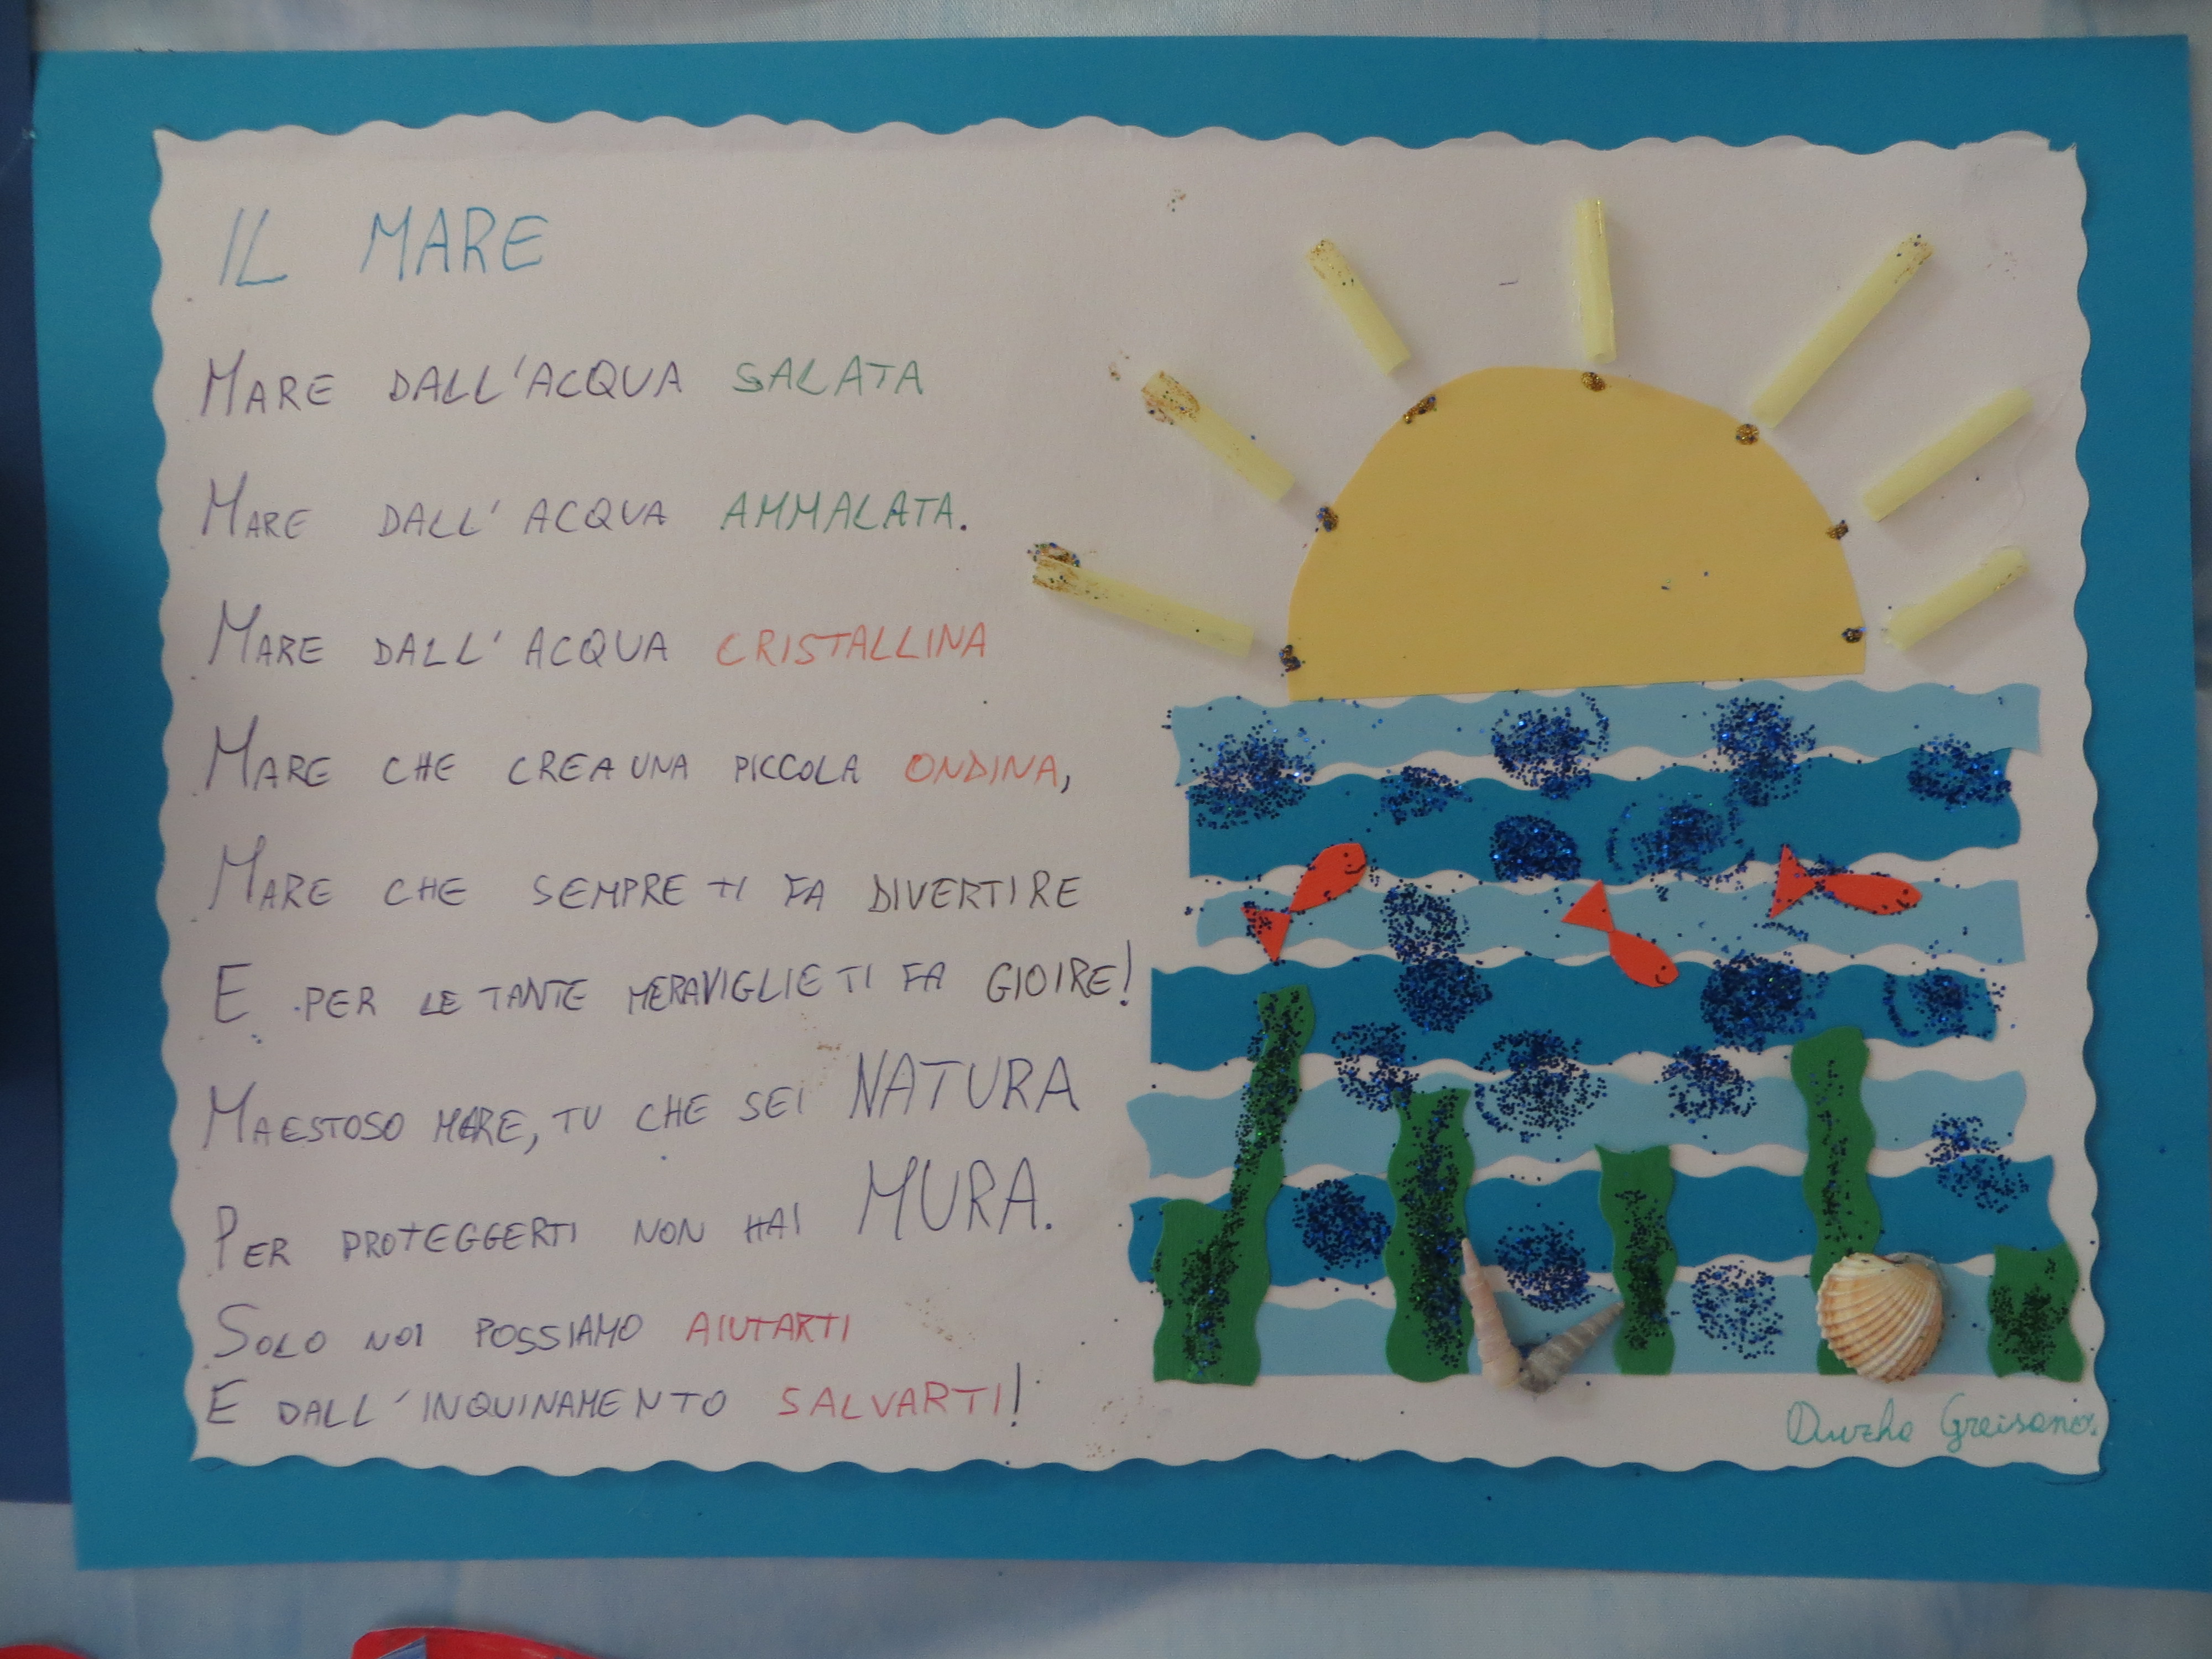 IL MARE
MARE DALL'ACQUA SALATA
MARE DALL'ACQUA AMMALATA.
MARE DALL'ACQUA CRISTALLINA
MARE CHE CREA UNA PICCOLA ONDINA,
MARE CHE SEMPRE TI FA DIVERTIRE
E PER LE TANTE MERAVIGLIE TI FA GIOIRE!
MAESTOSO MARE, TU CHE SEI NATURA
PER PROTEGGERTI NON HAI MURA.
SOLO NOI POSSIAMO AIUTARTI
E DALL'INQUINAMENTO SALVARTI!